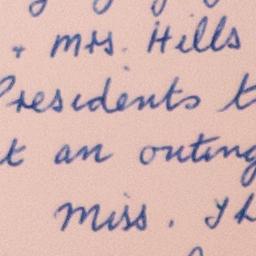 + Mrs. Hills
Presidents
an outing
Miss.